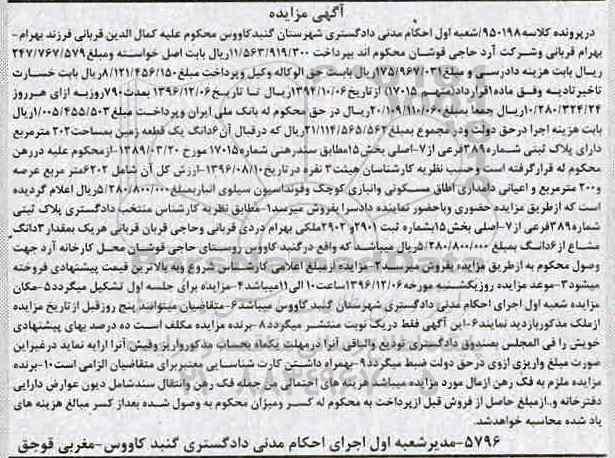 آگهی مزایده
در پرونده کلاسه ۹۵۰۱۹۸/شعبه اول احکام مدنی دادگستری شهرستان گنبدکاووس محکوم علیه کمال الدین قربانی فرزند بهرام-
بهرام قربانی وشرکت آرد حاجی قوشان محکوم اند بپرداخت ۱۱/۵۶۳/۹۱۹/۳۰۰ریال بابت اصل خواسته ومبلغ۲۴۷/۷۶۷/۵۷۹
ریال بابت هزینه دادرسی و مبلغ۱۷۵/۹۶۷/۰۳۱ریال بابت حق الوکاله وکیل وپرداخت مبلغ۸/۱۲۱/۴۵۶/۱۵۰ریال بابت خسارت
تاخیرتادیه وفق ماده۱قرارداد(متهم ۱۷۰۱۵) ازتاریخ۱۳۹۴/۱۰/۰۶ریال تا تاریخ۱۳۹۶/۱۲/۰۶ بمدت۷۹۰روزبه ازای هرروز
۱۰/۲۸۰/۳۲۴/۲۴ریال جمعا بمبلغ۲۰/۱۰۹/۱۱۰/۰۶۰ریال در حق محکوم له بانک ملی ایران وپرداخت مبلغ۱/۰۰۵/۴۵۵/۵۰۳ریال
بابت هزینه اجرا درحق دولت ودر مجموع بمبلغ۲۱/۱۱۴/۵۶۵/۵۶۲ریال که درقبال آن۶دانگ یک قطعه زمین بمساحت۲۰۲مترمربع
دارای پلاک ثبتی شماره۳۸۹فرعی از۷-اصلی بخش۱۵مطابق سندرهنی شماره۱۷۰۱۵مورخ ۱۳۸۹/۰۳/۲۰-ازمحکوم علیه دررهن
محکوم له قرارگرفته است وحسب نظریه کارشناسان هیئت۳ نفره درتاریخ۱۳۹۶/۰۸/۱۰-ارزش کل آن شامل ۶۲۰۲متر مربع عرصه
و۲۰۰ مترمربع و اعیانی دامداری اطاق مسکونی وانباری کوچک وفونداسیون سیلوی انباربمبلغ۵/۲۸۰/۸۰۰/۰۰۰ریال اعلام گردیده
است که ازطریق مزایده حضوری وباحضور نماینده دادسرا بفروش میرسد۱-مطابق نظریه کارشناس منتخب دادگستری پلاک ثبتی
شماره۳۸۹فرعی از۷-اصلی بخش۱۵بشماره ثبت ۲۹۰۱و ۲۹۰۲ملکی بهرام دردی قربانی وحاجی قربان قربانی هریک بمقدار۳دانگ
مشاع از۶دانگ بمبلغ ۵/۲۸۰/۸۰۰/۰۰۰ریال میباشد که واقع درگنبد کاووس روستای حاجی قوشان محل کارخانه آرد جهت
وصول محکوم به ازطریق مزایده بفروش میرسد۲-مزایده ازمبلغ اعلامی کارشناس شروع وبه بالاترین قیمت پیشنهادی فروخته
میشود۳-موعد مزایده روزیکشنبه مورخه۱۳۹۶/۱۲/۰۶ساعت۱۰ الی۱۱میباشد۴-مزایده برای جلسه اول تشکیل میگردد۵-مکان
مزایده شعبه اول اجرای احکام مدنی دادگستری شهرستان گنبد کاووس میباشد۶-متقاضیان میتوانند پنج روزقبل ازتاریخ مزایده
ازملک مذکوربازدید نمایند۷-این آگهی فقط دریک نوبت منتشر میگردد۸-برنده مزایده مکلف است ده درصد بهای پیشنهادی
خویش را فی المجلس بصندوق دادگستری تودیع والباقی آنرا درمهلت یکماه بحساب مذکورواریز وفیش آنرا ارایه نماید درغیراین
صورت مبلغ واریزی ازوی درحق دولت ضبط میگردد۹-بهمراه داشتن کارت شناسایی معتبربرای متقاضیان الزامی است۱۰-برنده
مزایده ملزم به فک رهن ازمال مورد مزایده میباشد هزینه های احتمالی من جمله فک رهن وانتقال سندشامل دیون عوارض دارایی
دفترخانه و..ازمبلغ حاصل از فروش قبل ازپرداخت به محکوم له کسر ومیزان محکوم به وصول شده بعداز کسر مبالغ هزینه های
یاد شده محاسبه خواهدشد.
۵۷۹۶-مدیرشعبه اول اجرای احکام مدنی دادگستری گنبد کاووس-مغربی قوجق